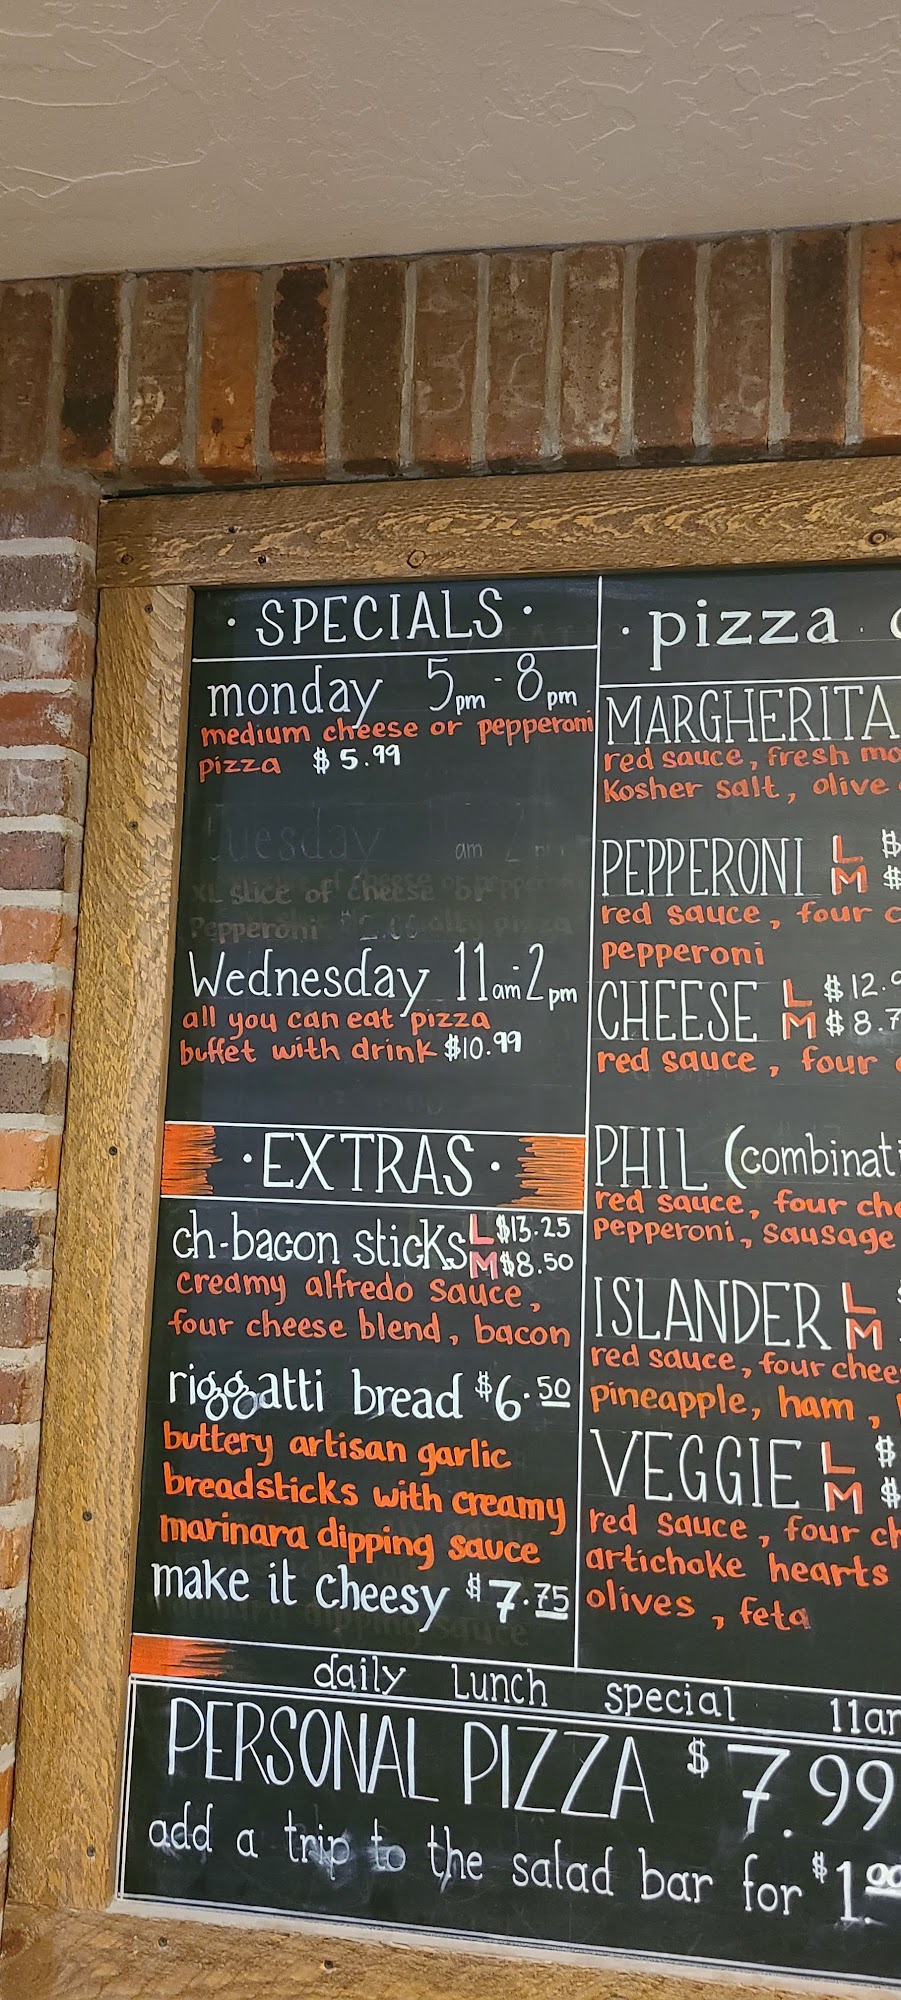 · SPECIALS ·
monday 5pm - 8pm
medium cheese or pepperoni
pizza $5.99
Tuesday
am
XL slice of cheese or
Pepperoni
Wednesday 11am-2pm
all you can eat pizza
buffet with drink $10.99
· EXTRAS ·
ch-bacon sticks L $13.25
M $8.50
creamy alfredo sauce,
four cheese blend, bacon
riggatti bread $6.50
buttery artisan garlic
breadsticks with creamy
marinara dipping sauce
make it cheesy $7.75
· pizza
MARGHERITA
red sauce, fresh mo
Kosher salt, olive
PEPPERONI L $
M $
red sauce, four c
pepperoni
CHEESE L $12.9
M $8.7
red sauce, four
PHIL (combinati
red sauce, four che
pepperoni, sausage
ISLANDER L
M
red sauce, four chee
pineapple, ham,
VEGGIE L $
M $
red sauce, four ch
artichoke hearts
olives, feta
daily Lunch special 11am
PERSONAL PIZZA $7.99
add a trip to the salad bar for $1.00